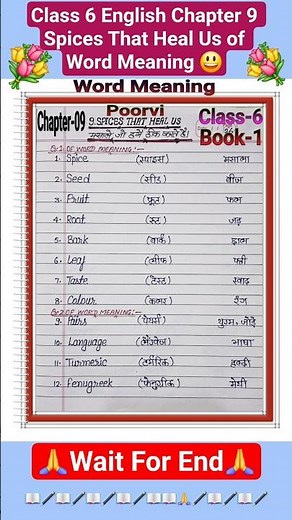 Class 6 English Chapter 9
Spices That Heal Us of
Word Meaning 😃
Word Meaning
Poorvi
Chapter-09 9. SPICES THAT HEAL US Class-6
मसाले, जो हमें ठीक करते हैं। Book-1
Ex:1 OF WORD MEANING:-
1. Spice (स्पाइस) मसाला
2. Seed (सीड) बीज
3. Fruit (फ्रूट) फल
4. Root (रूट) जड़
5. Bark (बार्क) छाल
6. Leaf (लीफ) पत्ती
7. Taste (टेस्ट) स्वाद
8. Colour (कलर) रंग
Ex:2 OF WORD MEANING:-
9. Pairs (पेयर्स) युग्म, जोड़े
10. Language (लैंग्वेज) भाषा
11. Turmeric (टर्मरिक) हल्दी
12. Fenugreek (फेनुग्रीक) मेथी
🙏Wait For End🙏